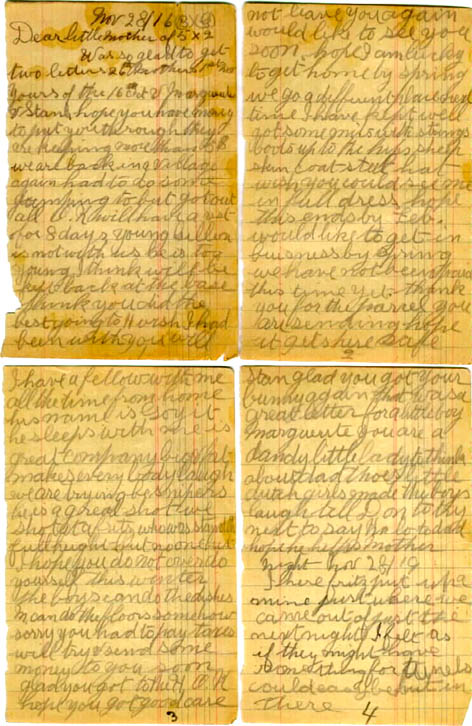 Nov 28/16
Dear little mother of 5 x 2
Was so glad to get
two letters 26th
yours of the 16 Oct
& Stan, hope you have
to put you through they
are keeping
we are back in a village
again had to do some
jumping to but got out
all O.K will have a rest
for 8 days young
is not with us he is too
young I think will be
kept back at the base
think you did the
best going to H wish I had
been with you will
not leave you again
would like to see you
soon hope I am lucky
to get home by spring
we go a different place next
time I have kept well
got some mits with strings
boots up to the hips sheep
skin coat steel hat
wish you could see me
in full dress hope
this ends by Feb.
would like to get in
buisness by spring
we have not been paid
this time yet. thank
you for the parcel you
are sending hope
it gets here safe
2
I have a fellow with me
all the time from home
his name is
he sleeps with me is
great company big fat
makes every body laugh
we are trying be snipers
he is a great shot we
shot at a fritz who was stand
full height but
I hope you do not overdo
yourself this winter
the boys can do the dishes
M can do the floors somehow
sorry you had to pay taxes
will try & send some
money to you soon
glad you got to the H
hope you got good care
3
Stan glad you got your
bunny again that was a
great letter for a little boy
marguerite you are a
dandy little lady to think
about dad those little
dutch girls made the boys
laugh tell Don to try
next to say hello to dad
hope he helps mother
night Nov 28/19
There fritz put up a
mine just where we
came out of just the
next night I felt as
if they might have
something for tunels
could easy be put in
There
4